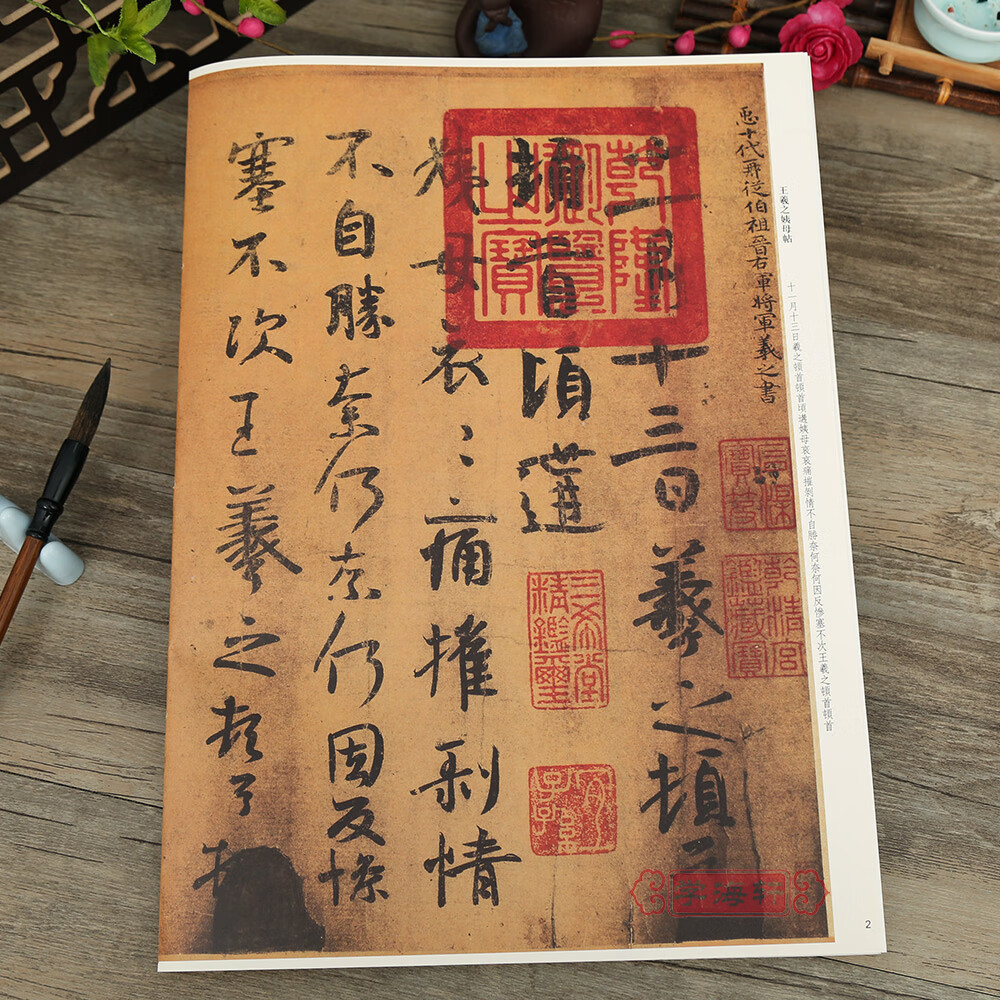 王羲之姨母帖
十一月十三日羲之頓首頓首頃遘姨母哀哀痛摧剝情不自勝奈何奈何因反慘塞不次王羲之頓首頓首
十代再從伯祖晉右軍將軍羲之書
十一月十三日羲之頓首
頓首頃遘
姨母哀〻痛摧剝情
不自勝奈何奈何因反慘
塞不次王羲之頓首
乾隆御覽之寶
石渠寶笈
乾清宮鑑藏寶
三希堂精鑑璽
宜子孫
2